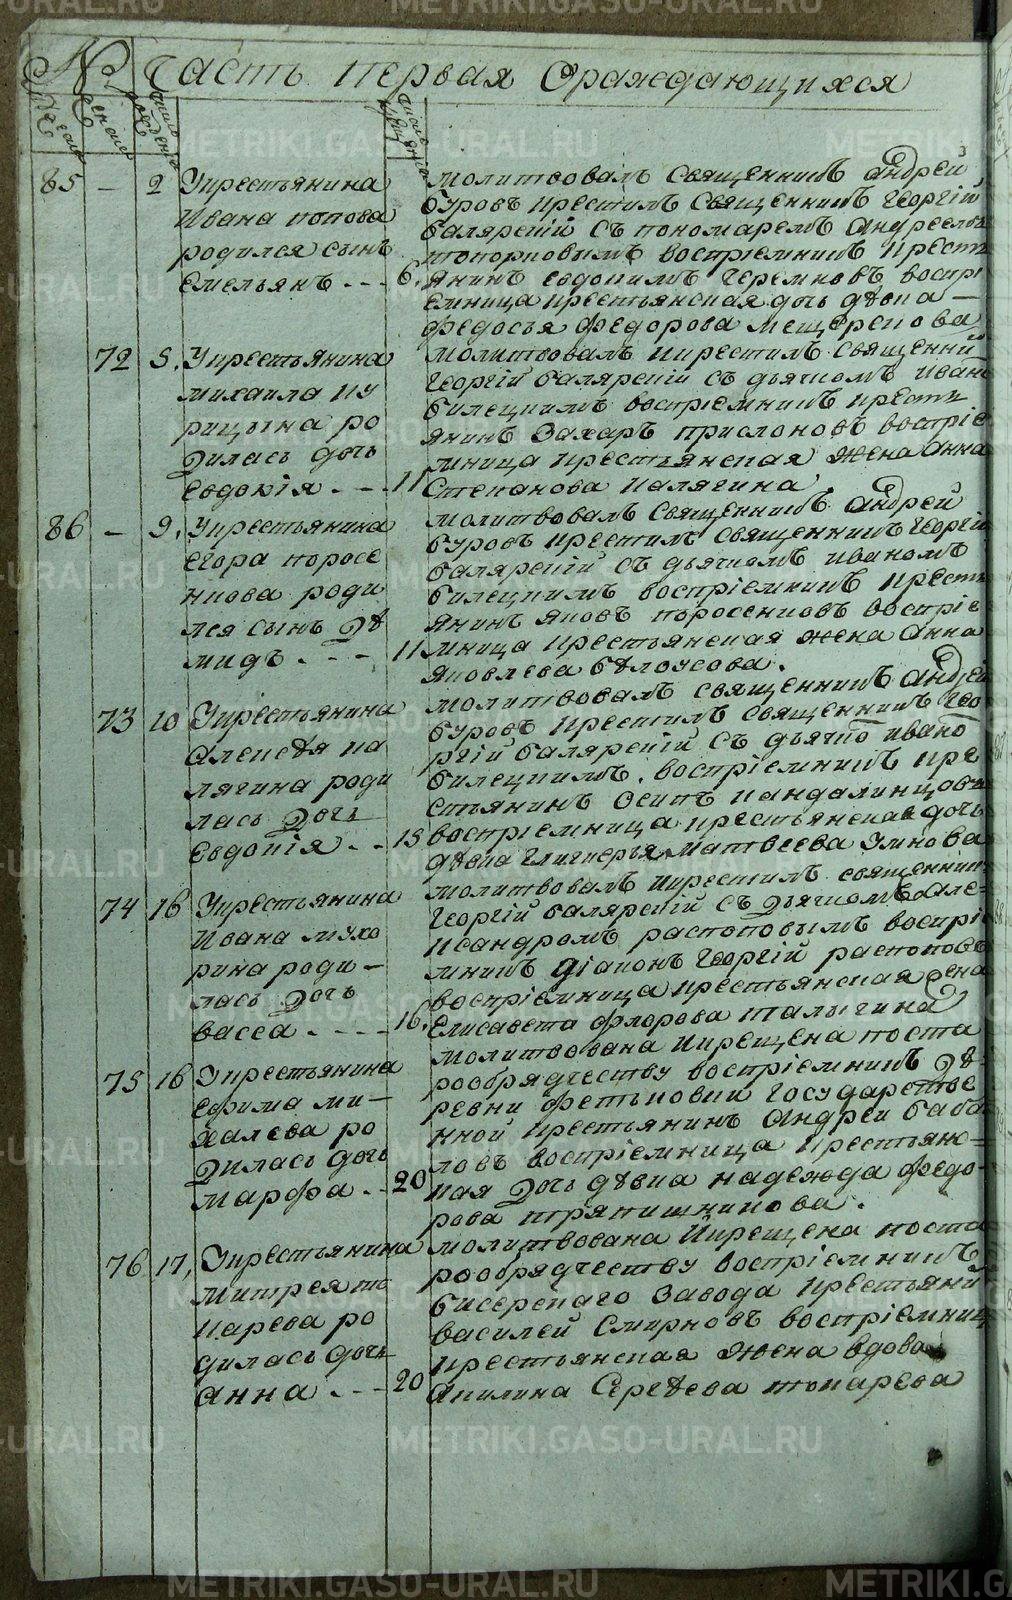 METRIKI.GASO-URAL.RU
Часть первая Ораждающихся
№
мужеска
женска
число рождения
число крещения
3
85 — 2 Укрестьянина
Ивана попова
родился сынъ
Емельянъ - - - 6.
молитвовалъ Священникъ андрей
буровъ крестилъ Священникъ Георгій
балярскій съ пономаремъ Андреемъ
топорковымъ воспріемникъ крестъ
янинъ евдокимъ черемновъ воспрі
емница крестьянская дочь дѣвка —
федосья федорова мещерекова
72 5. Укрестьянина
михаила ку
рицына ро
дилась дочь
Евдокія - - - 11
молитвовалъ икрестилъ священни
Георгій балярскій съ дьячкомъ иван
билецкимъ воспріемникъ крестъ
янинъ Захаръ прислоновъ воспріе
мница крестьянская жена Анна
Степанова калягина
86 — 9. Укрестьянина
Егора поросе
нкова роди
лся сынъ Дѣ
мидъ. - - - 11
молитвовалъ священникъ андрей
буровъ крестилъ священникъ Георгій
балярскій съ дьячкомъ иваномъ
билецкимъ воспріемникъ кресть
янинъ яковъ поросенковъ воспріе
мница крестьянская жена Анна
яковлева бѣлоусова.
73 10 Укрестьянина
Алексѣя ка
лягина роди
лась Дочь
Евдокія - - 15
молитвовалъ священникъ Андрей
буровъ крестилъ священникъ Гео
ргій балярскій съ дьячко ивано
билецкимъ. воспріемникъ кре
стьянинъ Осипъ кандалинцовъ
воспріемница крестьянская дочь
дѣвка Гликперья Матвеева Уинова
74 16 Укрестьянина
Ивана мухо
рина роди —
лась Дочь
васса - - - - 16.
молитвовалъ икрестилъ священник
Георгій балярскій съ Дьячкомъ Але-
ксандромъ распоповымъ воспрі
мникъ діаконъ Георгій распоповъ
воспріемница крестьянская жена
Елисавета флорова талыгина
75 16 Укрестьянина
Ефима ми —
халева ро
дилась дочь
марфа - - 20
молитвована икрещена поста
рообрядчеству воспріемникъ Дѣ-
ревни фетьковки Государстве
нной крестьянинъ Андрей баба
ловъ воспріемница крестьянс-
кая Дочь дѣвка надежда федо-
рова тряпишникова.
76 17, Укрестьянина
митрея то
карева ро
дилась дочь
анна - - - 20
молитвована икрещена поста
рообрядчеству воспріемникъ
бисерскаго завода крестьяни
василей Смирновъ воспріемниц
крестьянская жена вдова
Акилина Сергѣева токарева